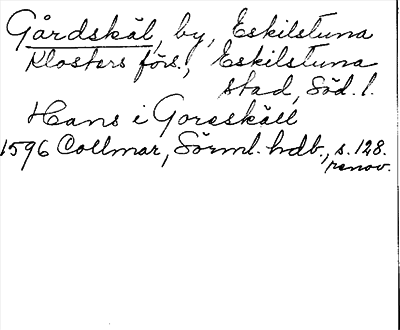 Gårdskäl, by, Eskilstuna
Klosters förs., Eskilstuna
stad, Söd. l.
Hans i Goreskäll
1596 Collmar, Sörml. hdb., s. 128.
renov.